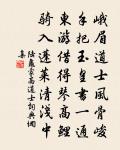 峨眉道士風骨峻
手把玉皇書一通
東游借得琴高鯉
騎入蓬萊清淺中
陸龜蒙高道士詞典網
集